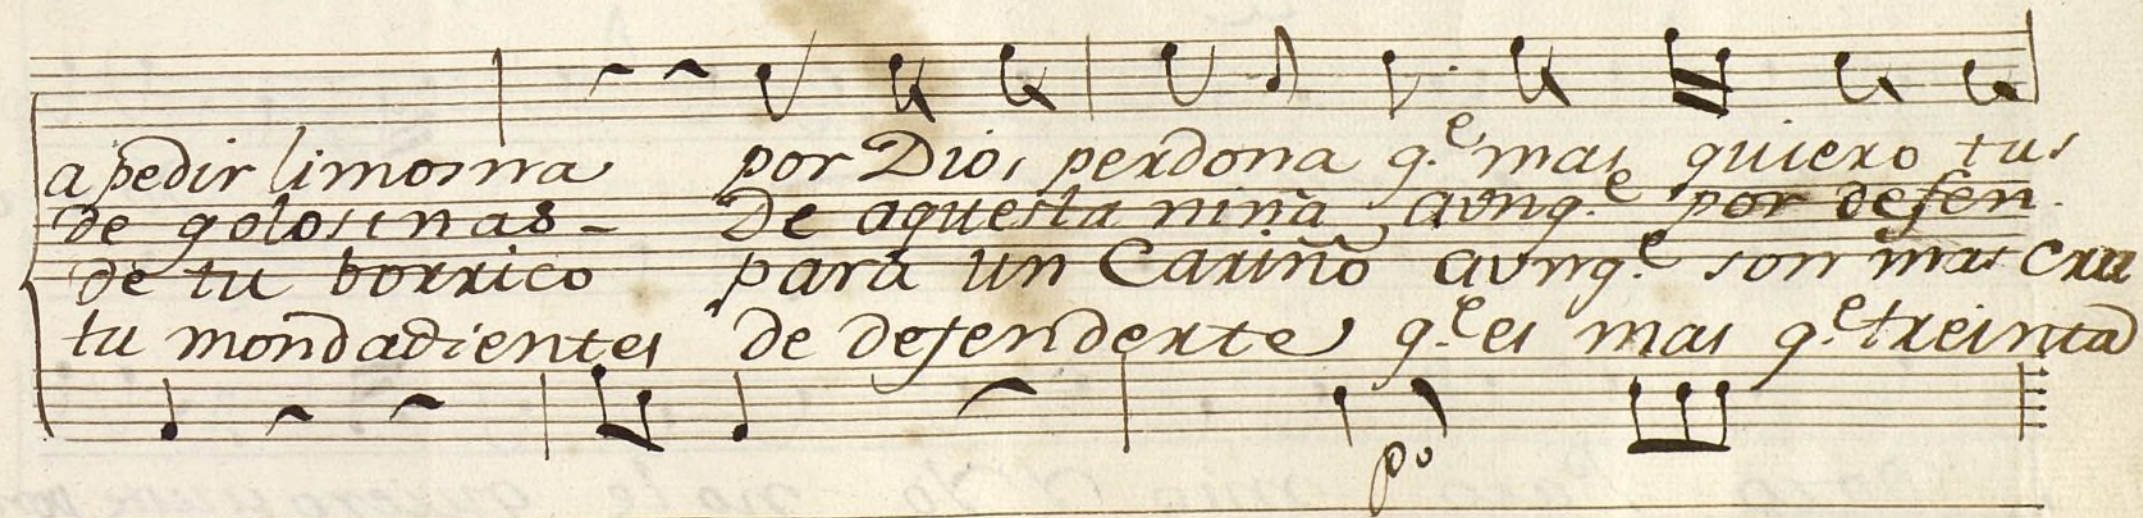 a pedir limosna por Dios perdona q.e mas quiero tus
de golosinas - De aquesta niña avnq.e por defen.
de tu borrico para un Cariño avnq.e son mas cru
tu mondadientes de defenderte q.e es mas q.e treinta
po